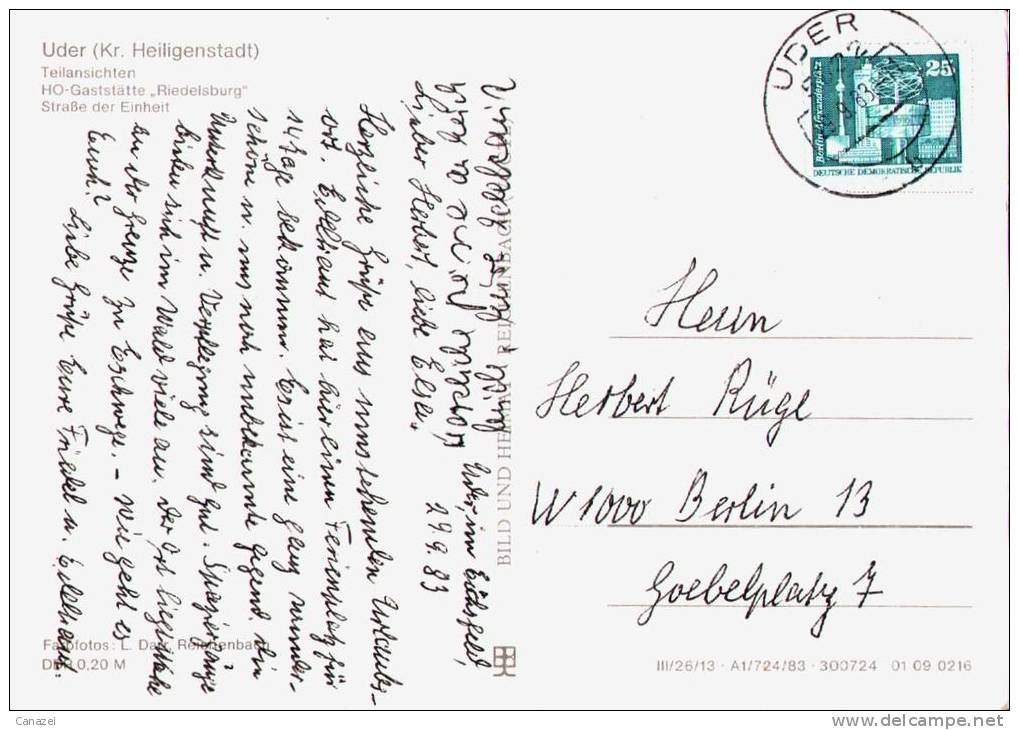 Uder (Kr. Heiligenstadt)
Teilansichten
HO-Gaststätte „Riedelsburg"
Straße der Einheit
UDER
25
Berlin-Alexanderplatz
DEUTSCHE DEMOKRATISCHE REPUBLIK
Uder, im Eichsfeld,
29.9.83
Lieber Herbert, liebe Elsen
Herzliche Grüße aus umstehenden Urlaubs-
ort. Ekkhart hat hier einen Ferienplatz für
14 Tage bekommen. Es ist eine ganz wunder-
schöne u. uns noch unbekannte Gegend. Die
Unterkunft u. Verpflegung sind gut. Spaziergänge
bieten sich im Wald viele an. Der Ort liegt nahe
an der Grenze zu Eschwege. – Wie geht es
Euch?
Liebe Grüße Eure Friedel u. Ekkhart.
Herrn
Herbert Rüge
W 1000 Berlin 13
Goebelplatz 7
BILD UND HEIMAT REICHENBACH
Farbfotos: L. Darr, Reichenbach
DDR 0,20 M
III/26/13 · A1/724/83 · 300724 01 09 0216
Canazei
www.delcampe.net